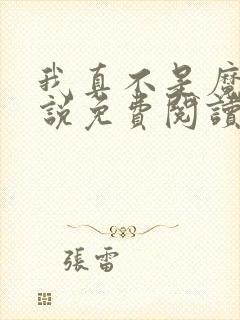 我真不是魔
說免費閱讀
張雷